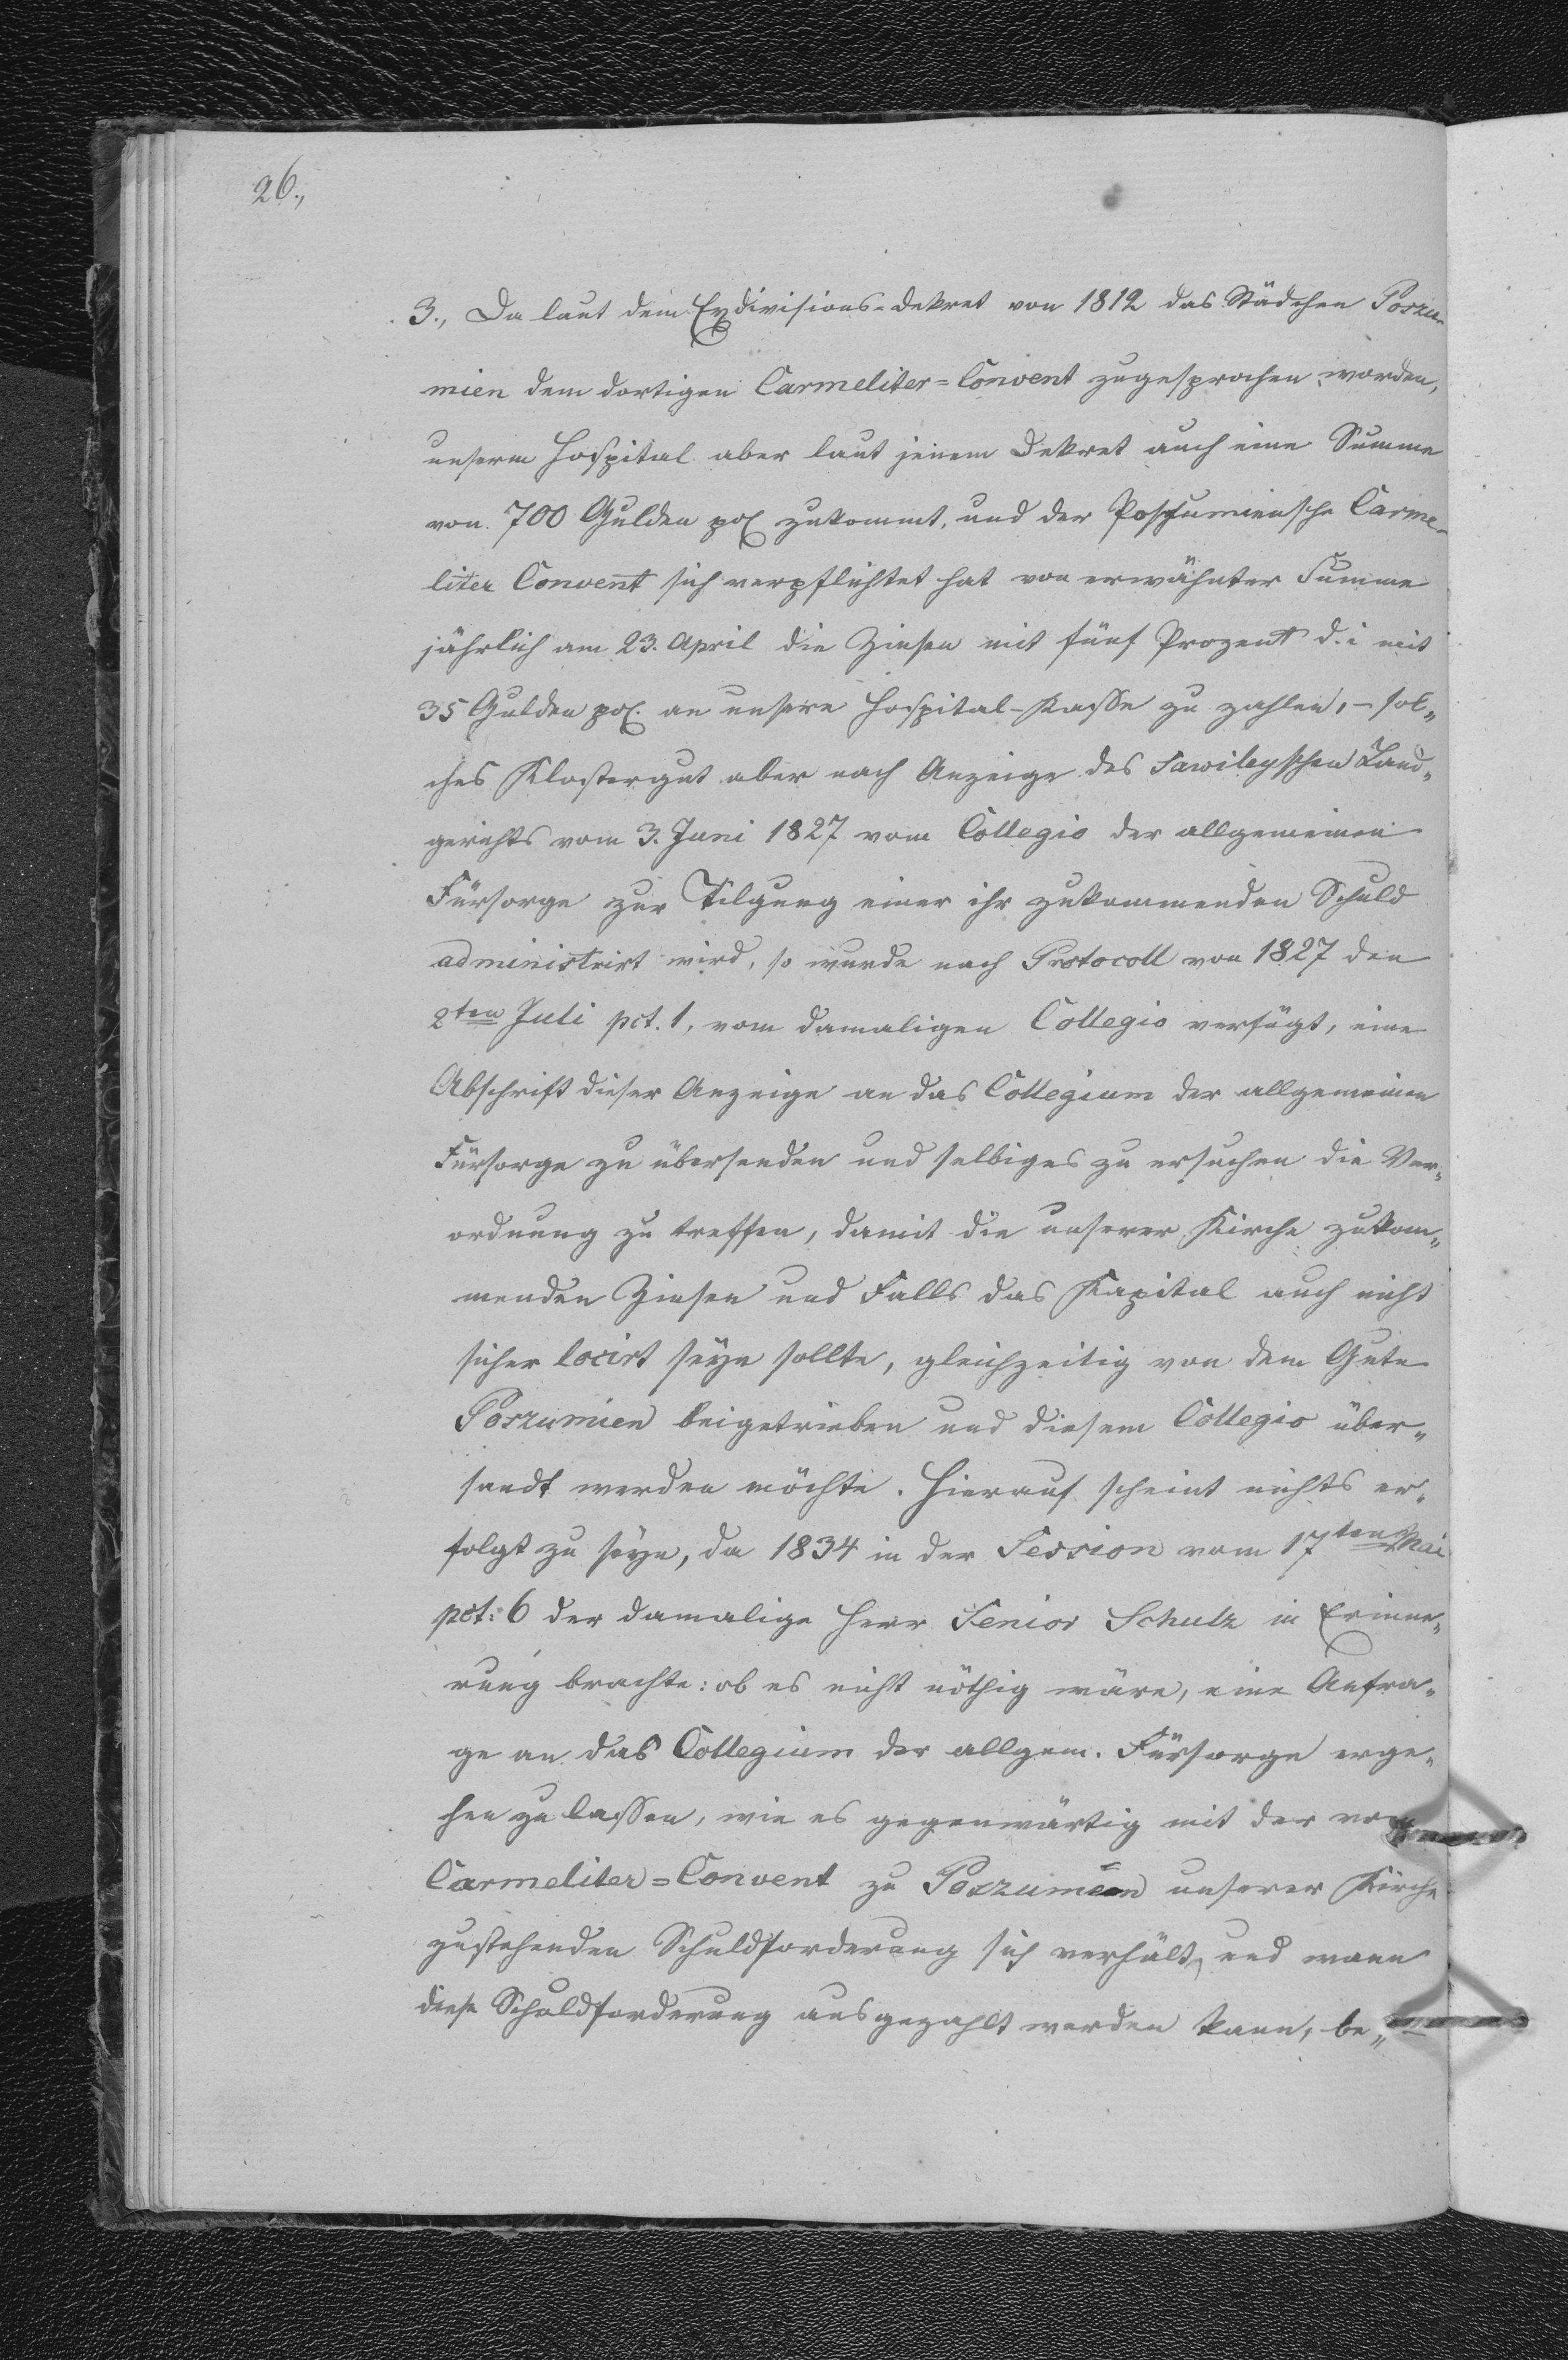 26.,
3., Da laut dem Exdivisions-Dekret von 1812 das Städchen Poszu-
mien dem dortigen Carmeliter=Convent zugesprochen worden,
unserm Hospital aber laut jenem Dekret auch eine Summe
von 700 Gulden pol zukommt, und der Poszumiensche Carme-
liter Convent sich verpflichtet hat von erwähnter Summe
jährlich am 23. April die Zinsen mit fünf Prozent d. i mit
35 Gulden pol. an unsere Hospital-Kasse zu zahlen, – sol„
ches Klostergut aber nach Anzeige des Sawileyschen Land„
gerichts vom 3. Juni 1827 vom Collegio der allgemeinen
Fürsorge zur Tilgung einer ihr zukommenden Schuld
administrirt wird, so wurde nach Protocoll von 1827 den
2ten Juli pct. 1, vom damaligen Collegio verfügt, eine
Abschrift dieser Anzeige an das Collegium der allgemeinen
Fürsorge zu übersenden und selbiges zu ersuchen die Ver„
ordnung zu treffen, damit die unserer Kirche zukom„
menden Zinsen und Falls das Kapital auch nicht
sicher locirt seyn sollte, gleichzeitig von dem Gute
Poszumien beigetrieben und diesem Collegio über„
sandt werden möchte. Hierauf scheint nichts er„
folgt zu seyn, da 1834 in der Session vom 17ten Mai
pct: 6 der damalige Herr Senior Schulz in Erinne„
rung brachte: ob es nicht nöthig wäre, eine Anfra„
ge an das Collegium der allgem. Fürsorge erge„
hen zu lassen, wie es gegenwärtig mit der vom
Carmeliter=Convent zu Poszumien unserer Kirche
zustehenden Schuldforderung sich verhält, und wann
diese Schuldforderung ausgezahlt werden kann, be„